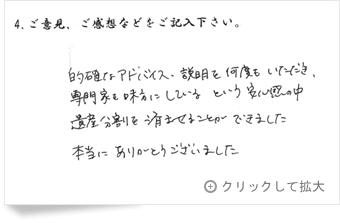 4、ご意見、ご感想などをご記入下さい。
的確なアドバイス、説明を何度もいただき、
専門家を味方にしている という安心感の中
遺産分割を済ませることができました
本当に ありがとうございました
クリックして拡大